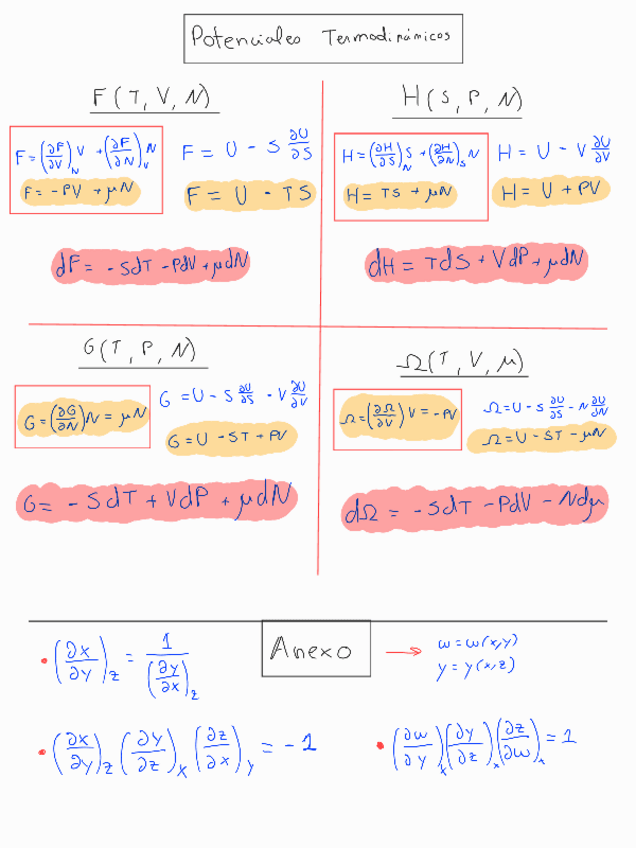 Potenciales Termodinámicos
F(T, V, N)
F = (∂F/∂V)_N V + (∂F/∂N)_V N
F = -PV + μN
F = U - S ∂U/∂S
F = U - TS
dF = -SdT - PdV + μdN
H(S, P, N)
H = (∂H/∂S)_N S + (∂H/∂N)_S N
H = TS + μN
H = U - V ∂U/∂V
H = U + PV
dH = TdS + VdP + μdN
G(T, P, N)
G = (∂G/∂N) N = μN
G = U - S ∂U/∂S - V ∂U/∂V
G = U - ST + PV
G = -SdT + VdP + μdN
Ω(T, V, μ)
Ω = (∂Ω/∂V) V = -PV
Ω = U - S ∂U/∂S - N ∂U/∂N
Ω = U - ST - μN
dΩ = -SdT - PdV - Ndμ
Anexo
• (∂x/∂y)_z = 1/(∂y/∂x)_z
→ w = w(x,y)
y = y(x,z)
• (∂x/∂y)_z (∂y/∂z)_x (∂z/∂x)_y = -1
• (∂w/∂y)_x (∂y/∂z)_x (∂z/∂w)_x = 1